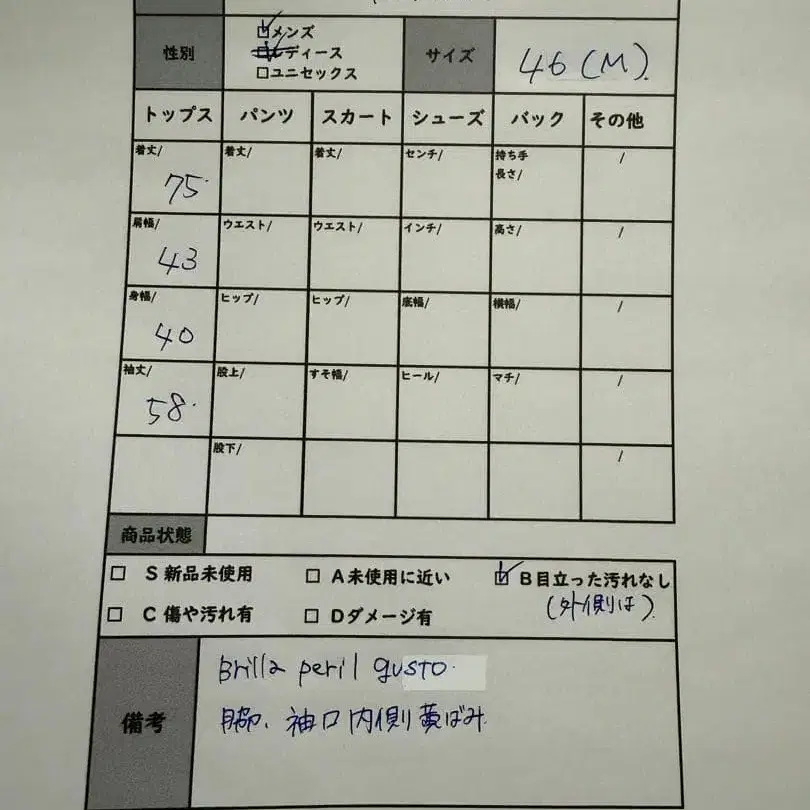 性別
メンズ
レディース
ユニセックス
サイズ
46(M).
トップス パンツ スカート シューズ バック その他
着丈/ 着丈/ 着丈/ センチ/ 持ち手 /
長さ/
75.
肩幅/ ウエスト/ ウエスト/ インチ/ 高さ/ /
43
身幅/ ヒップ/ ヒップ/ 底幅/ 横幅/ /
40
袖丈/ 股上/ すそ幅/ ヒール/ マチ/ /
58.
股下/ /
商品状態
S 新品未使用 A未使用に近い B目立った汚れなし
(外側は).
C 傷や汚れ有 Dダメージ有
備考
Brilla peril gusto.
脇、袖口内側黄ばみ